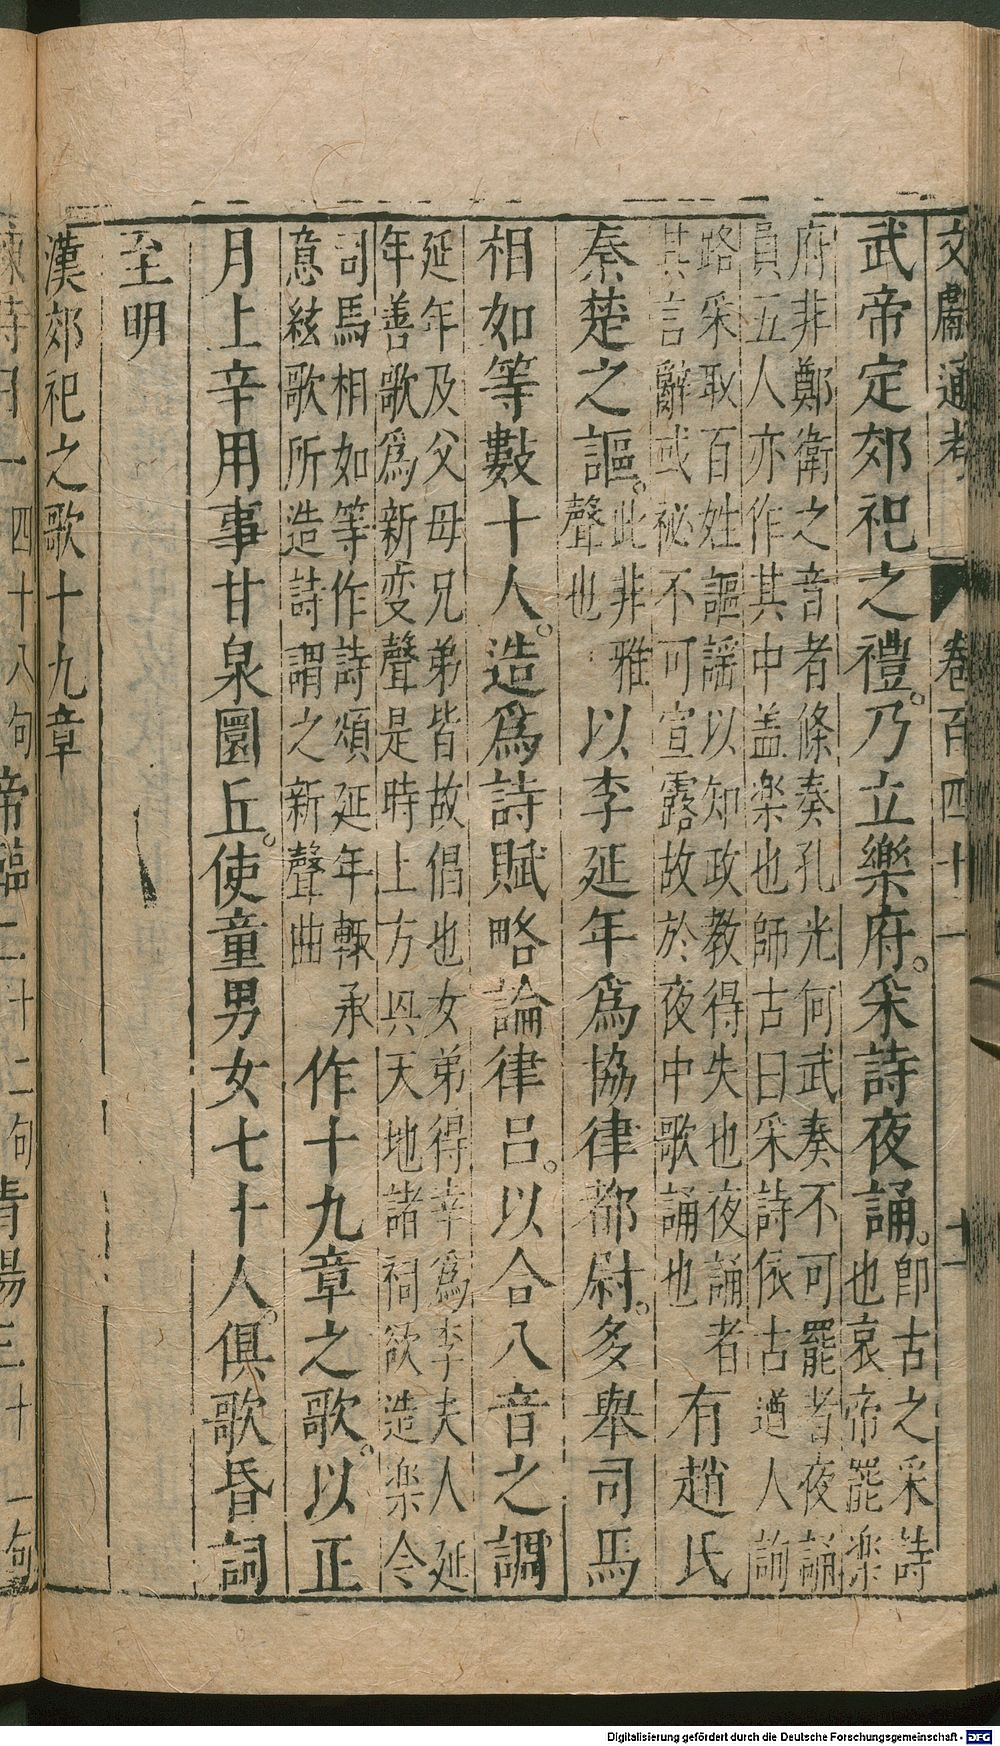 文獻通考 卷百四十一 十一
武帝定郊祀之禮。乃立樂府。采詩夜誦。即古之采詩
也哀帝罷楽
府非鄭衛之音者條奏孔光何武奏不可罷者夜誦
員五人亦作其中盖楽也師古曰采詩依古遒人詢
路采取百姓謳謡以知政教得失也夜誦者
其言辭或祕不可宣露故於夜中歌誦也
有趙氏
秦楚之謳。此非雅
聲也
以李延年爲協律都尉。多舉司馬
相如等數十人。造爲詩賦略論律呂。以合八音之調
延年及父母兄弟皆故倡也女弟得幸爲李夫人延
年善歌爲新変聲是時上方興天地諸祠欲造楽令
司馬相如等作詩頌延年輙承
意絃歌所造詩謂之新聲曲
作十九章之歌。以正
月上辛用事甘泉圜丘。使童男女七十人。俱歌昏詞
至明
漢郊祀之歌十九章
時日一四十八句 帝臨二十二句 青陽三十一句
Digitalisierung gefördert durch die Deutsche Forschungsgemeinschaft - DFG